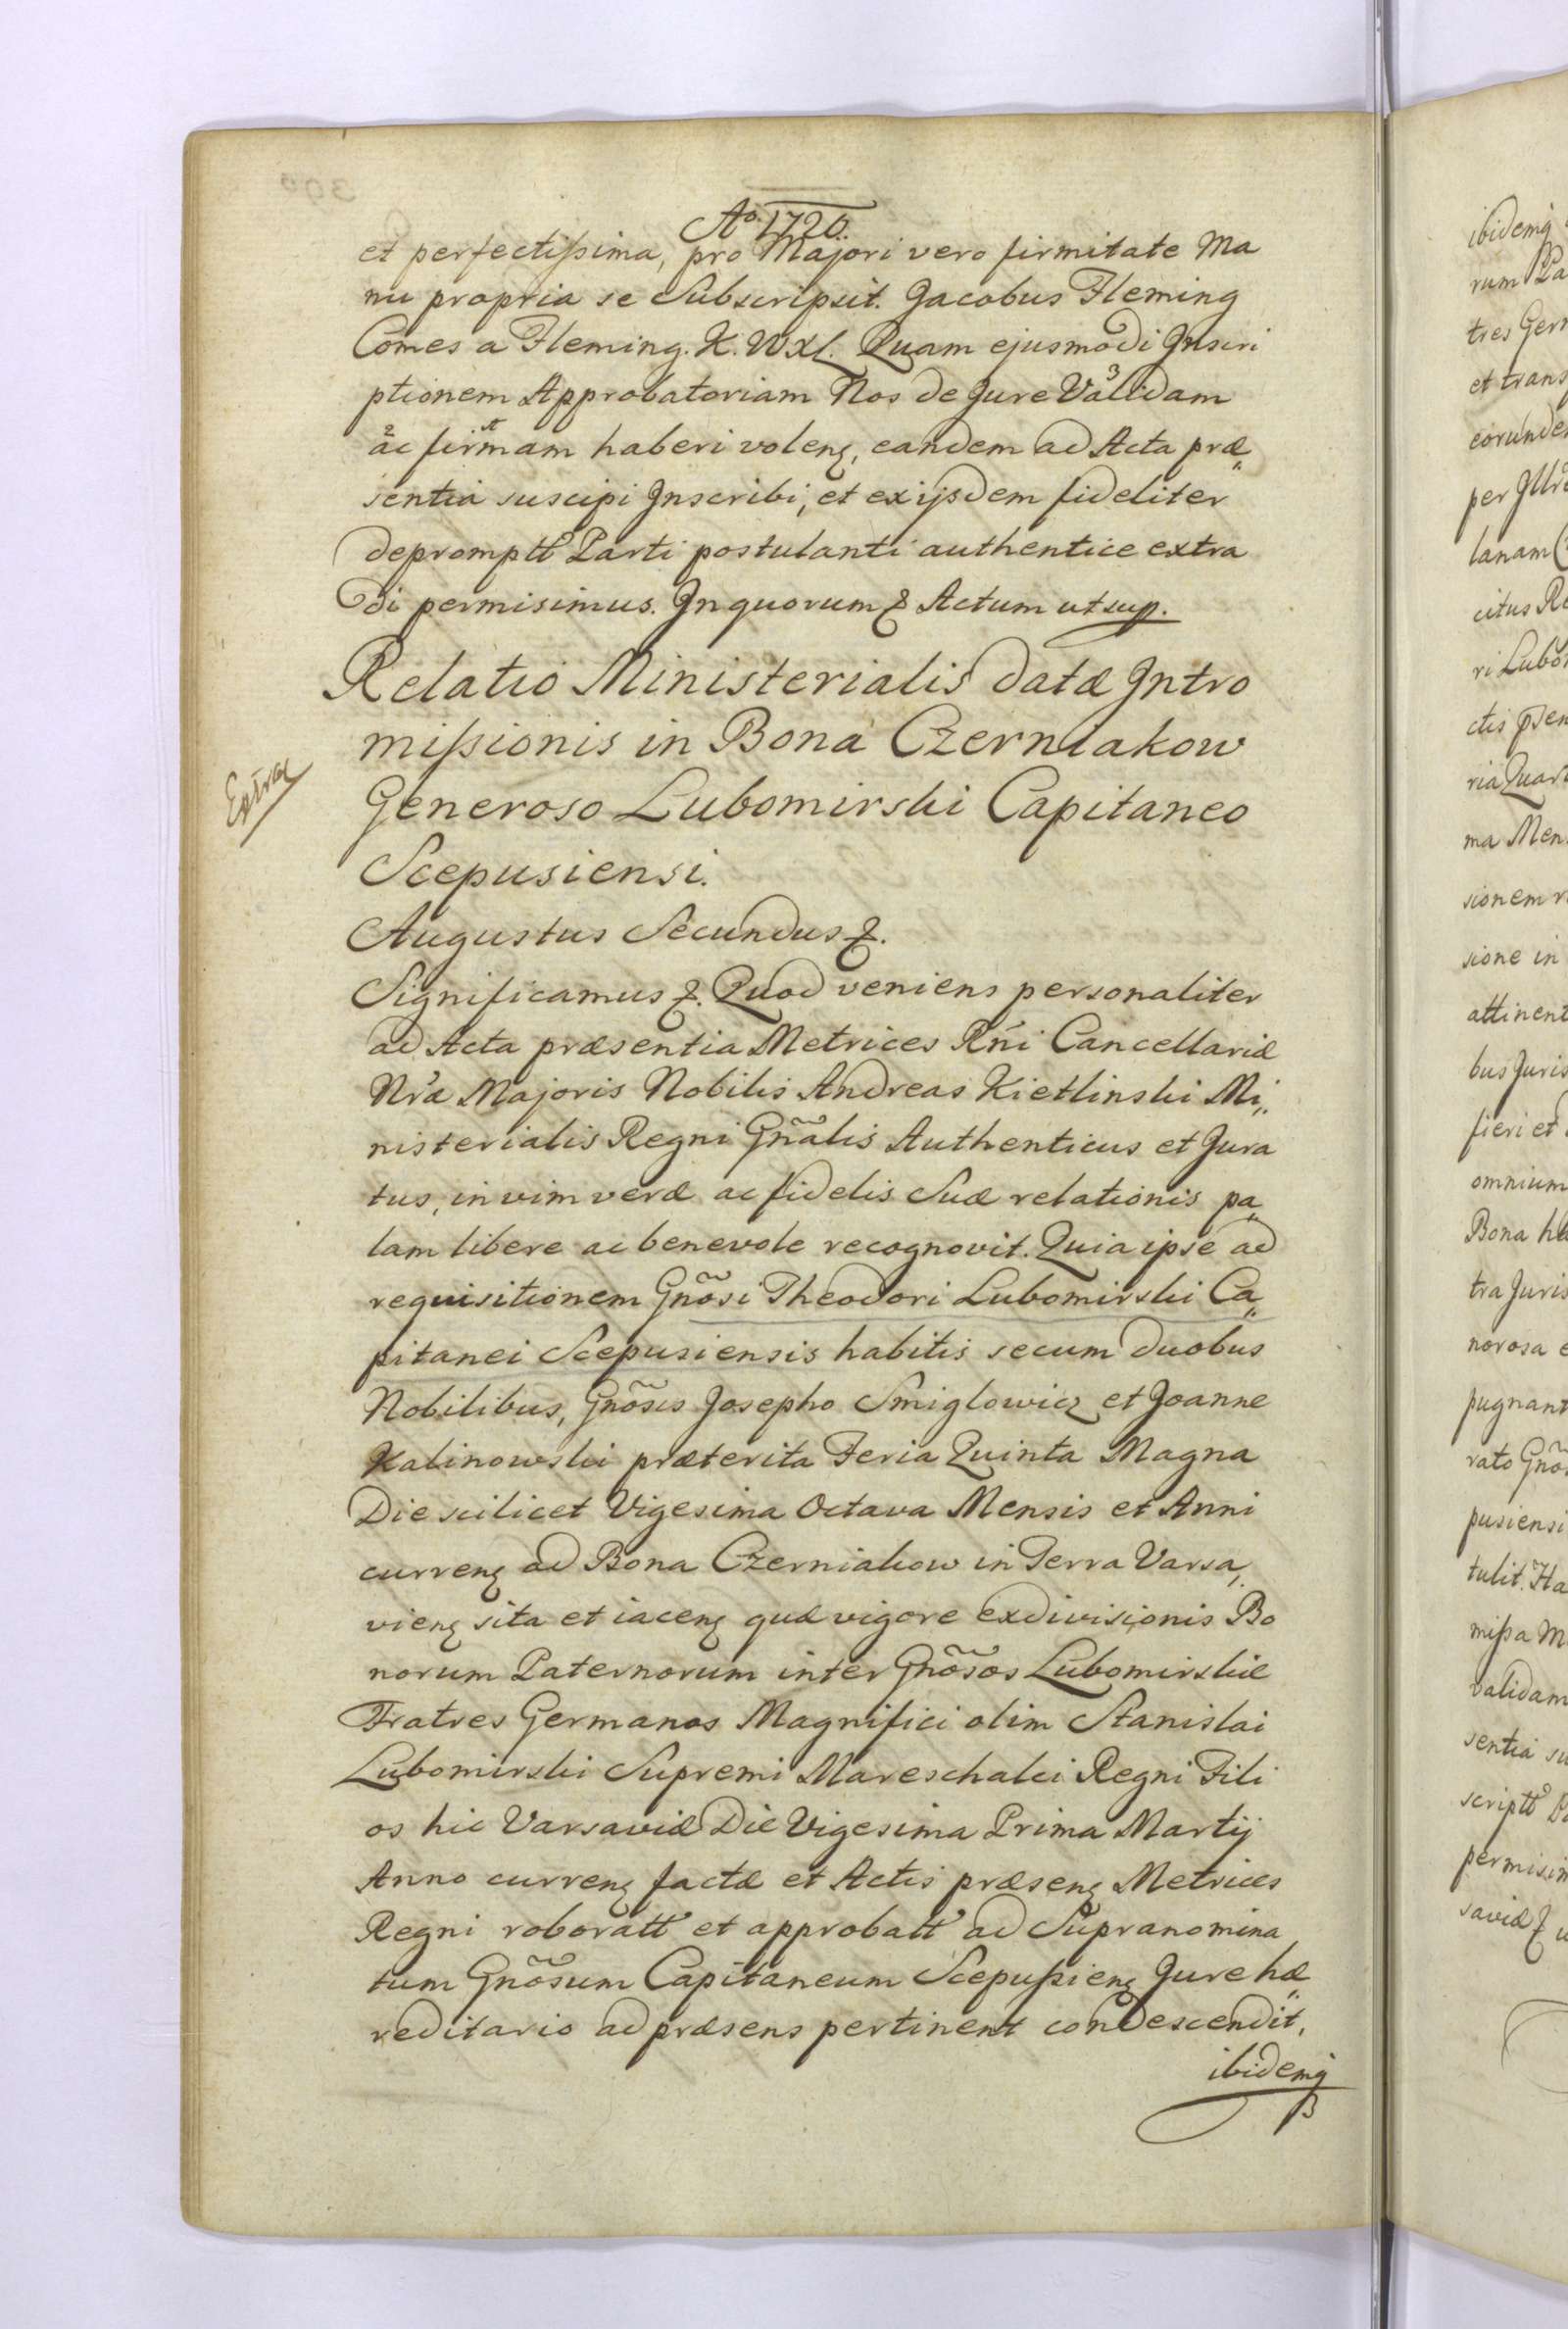 Ao. 1720.
et perfectissima, pro Majori vero firmitate Ma
nu propria se Subscripsit. Jacobus Fleming
Comes a Fleming. K. W. X. L. Quam ejusmodi Inscri
ptionem Approbatoriam Nos de Jure Validam
ac firmam haberi volenȝ, eandem ad Acta præ„
sentia suscipi Inscribi, et ex ijsdem fideliter
depromptt Parti postulanti authentice extra
di permisimus. In quorum & Actum ut sup.
Relatio Ministerialis datæ Intro
missionis in Bona Czerniakow
Generoso Lubomirski Capitaneo
Scepusiensi.
Extrac
Augustus Secundus &.
Significamus &. Quod veniens personaliter
ad Acta præsentia Metrices Rñi Cancellariæ
Nræ Majoris Nobilis Andreas Kietlinski Mi„
nisterialis Regni Gñalis Authenticus et Jura
tus, in vim veræ ac fidelis Suæ relationis pa„
lam libere ac benevole recognovit. Quia ipse ad
requisitionem Gñosi Theodori Lubomirski Ca„
pitanei Scepusiensis habitis secum duobus
Nobilibus, Gñosis Josepho Smiglowicz et Joanne
Kalinowski præterita Feria Quinta Magna
Die scilicet Vigesima Octava Mensis et Anni
currenȝ ad Bona Czerniakow in Terra Varsa„
vienȝ sita et iacenȝ quæ vigore exdivisionis Bo
norum Paternorum inter Gñosos Lubomirskie
Fratres Germanos Magnifici olim Stanislai
Lubomirski Supremi Mareschalci Regni Fili
os hic Varsaviæ Die Vigesima Prima Martij
Anno currenȝ factæ et Actis præsenȝ Metrices
Regni roboratt et approbatt ad Supranomina
tum Gñosum Capitaneum Scepussienȝ Jure hæ„
reditario ad præsens pertinent condescendit,
ibidemq